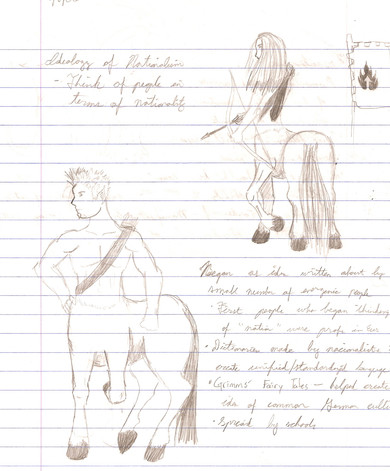 Ideology of Nationalism
- Think of people in
terms of nationality
Began as idea written about by
small number of european people
• First people who began thinking
of "nation" were profs in
• Dictionaries made by nationalists
create unified/standardized language
• Grimms' Fairy Tales — helped create
idea of common German
• Spread by schools